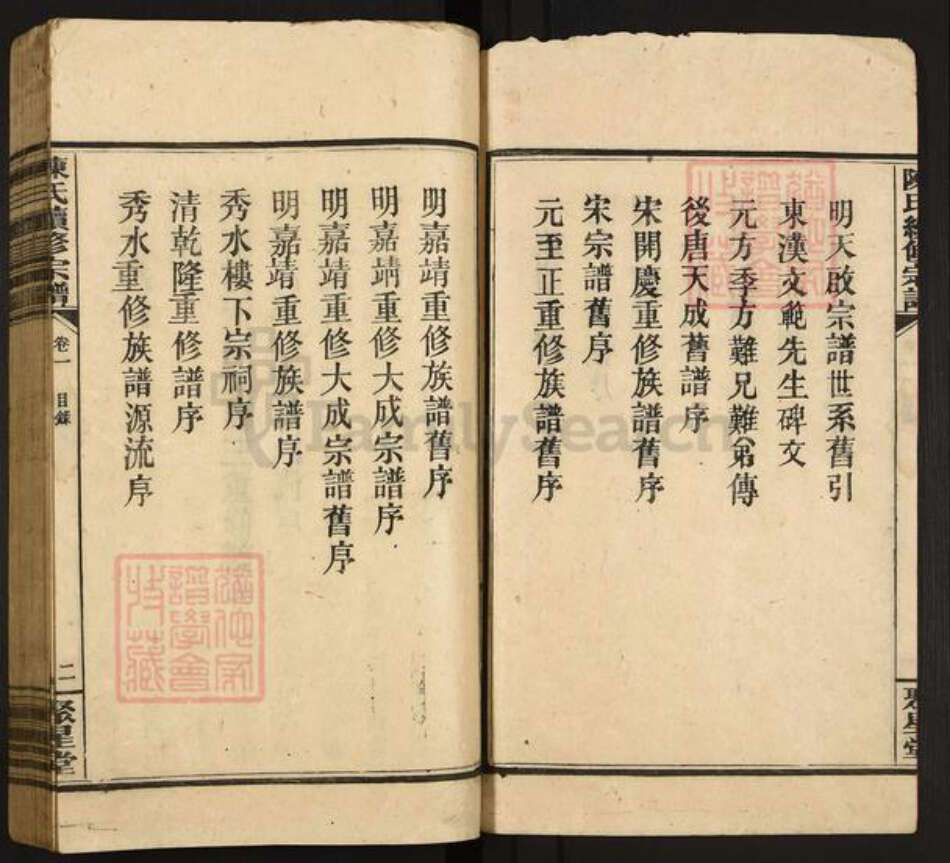 陳氏續修宗譜
聚星堂
明天啟宗譜世系舊引
東漢文範先生碑文
元方季方難兄難弟傳
後唐天成舊譜序
宋開慶重修族譜舊序
宋宗譜舊序
元至正重修族譜舊序
明嘉靖重修族譜舊序
明嘉靖重修大成宗譜序
明嘉靖重修大成宗譜舊序
明嘉靖重修族譜序
秀水樓下宗祠序
清乾隆重修譜序
秀水重修族譜源流序
陳氏續修宗譜
卷一
目錄
二
聚星堂
FamilySearch